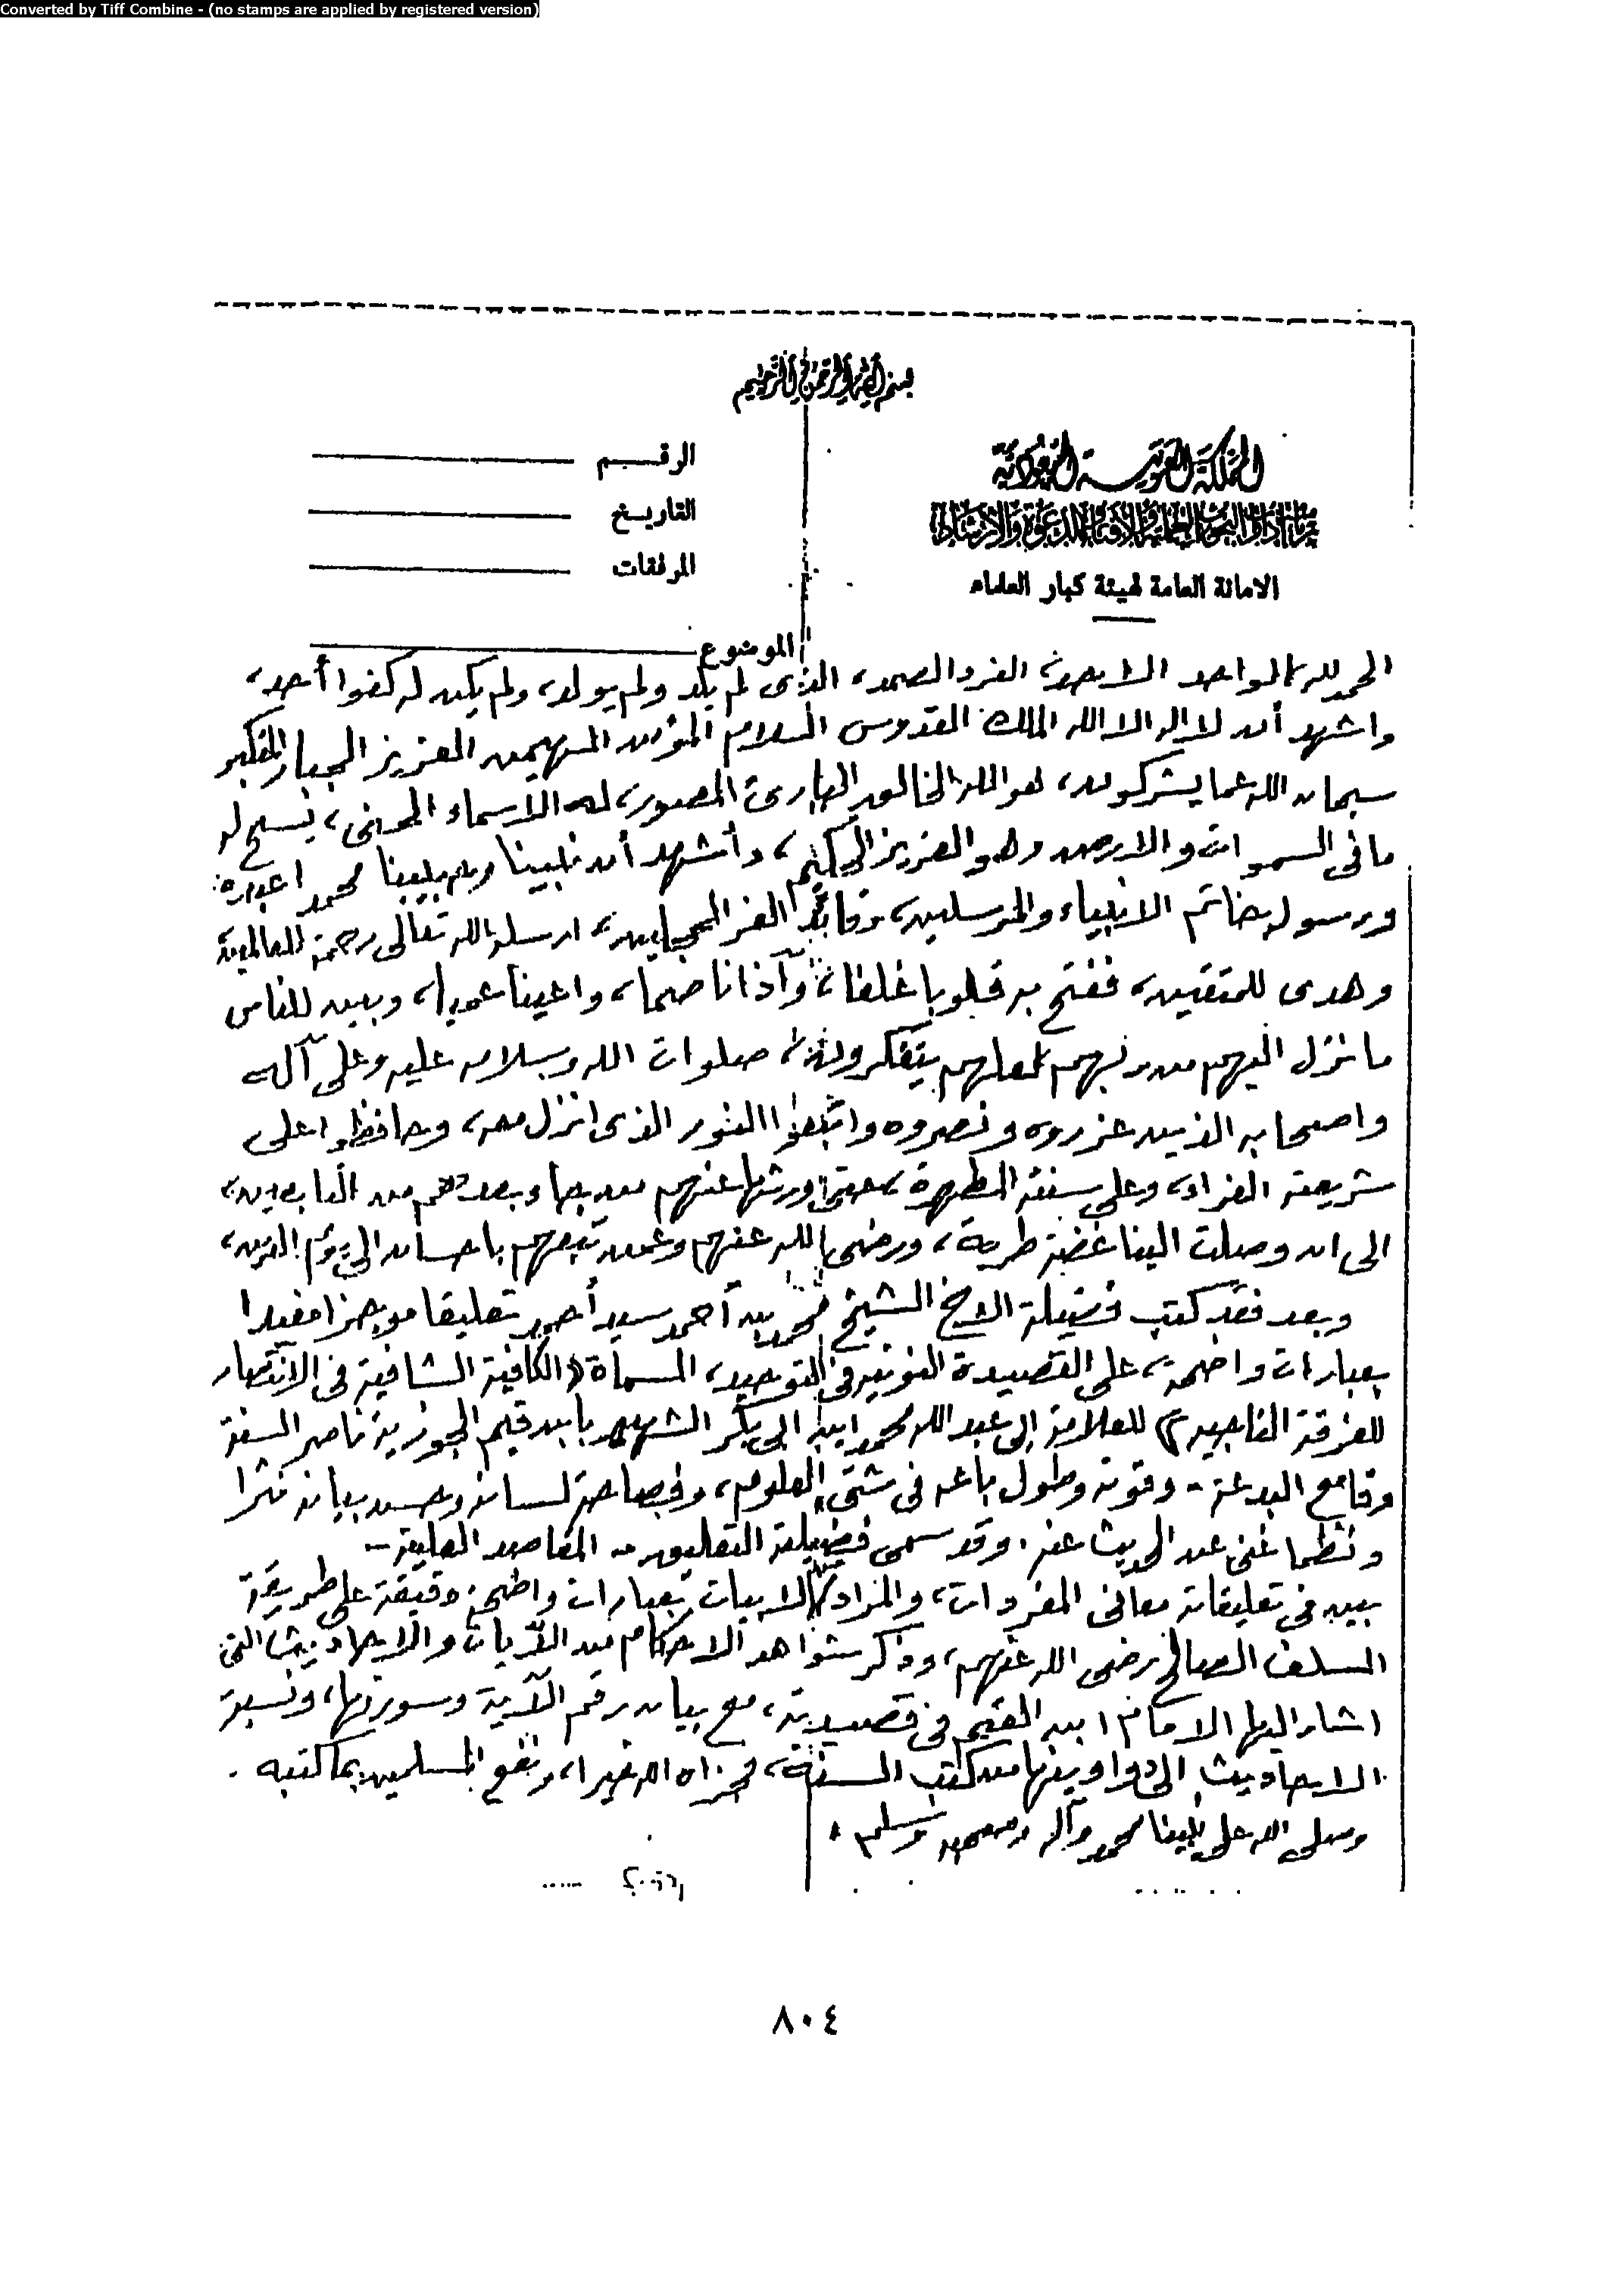 Converted by Tiff Combine - (no stamps are applied by registered version)
بسم الله الرحمن الرحيم
المملكة العربية السعودية
رئاسة ادارات البحوث العلمية والافتاء والدعوة والارشاد
الامانة العامة لهيئة كبار العلماء
الرقـــم
التاريـــخ
المرفقات
الموضوع
الحمد لله الواحد الاحد، الفرد الصمد، الذى لم يلد ولم يولد، ولم يكن له كفوا أحد،
واشهد أن لا اله الا الله الملك القدوس السلام المؤمن المهيمن العزيز الجبار المتكبر
سبحان الله عما يشركون، هو الله الخالق البارئ المصور، له الاسماء الحسنى، يسبح له
ما فى السموات والارض وهو العزيز الحكيم، وأشهد أن نبينا وحبيبنا محمدا عبده
ورسوله خاتم الانبياء والمرسلين، وقائد الغر المحجلين، ارسله الله تعالى رحمة للعالمين
وهدى للمتقين، ففتح به قلوبا غلفا، وآذانا صما، واعينا عميا، وبين للناس
ما نزل اليهم من ربهم لعلهم يتفكرون، صلوات الله وسلامه عليه وعلى آله
واصحابه الذين عزروه ونصروه واتبعوا النور الذى انزل معه، وحافظوا على
شريعته الغراء، وعلى سنته المطهرة، حتى ورثها عنهم من جاء بعدهم من التابعين،
الى ان وصلت الينا غضة طرية، ورضى الله عنهم وعمن تبعهم باحسان الى يوم الدين،
وبعد فقد كتب فضيلة الاخ الشيخ محمد بن أحمد سيد أحمد تعليقا موجزا مفيدا
بعبارات واضحة، على القصيدة النونية فى التوحيد، المسماة (الكافية الشافية فى الانتصار
للفرقة الناجية) للعلامة ابى عبد الله محمد ابن ابى بكر الشهير بابن قيم الجوزية ناصر السنة
وقامع البدعة - وقوته وطول باعه فى شتى العلوم، وفصاحة لسانه وحسن بيانه نثرا
ونظما غنى عن الحديث عنه. وقد سمى فضيلته التعليق - المقاصد العلية -
بين فى تعليقاته معانى المفردات، والمراد من الابيات بعبارات واضحة دقيقة على طريقة
السلف الصالح رضى الله عنهم، وذكر شواهد الاحكام من الآيات والاحاديث التى
اشار اليها الامام ابن القيم فى قصيدته، مع بيان رقم الآية وسورتها، ونسبة
الاحاديث الى دواوينها من كتب السنة، فجزاه الله خيرا، ونفع المسلمين بما كتبه.
وصلى الله على نبينا محمد وآله وصحبه وسلم،
٨٠٤